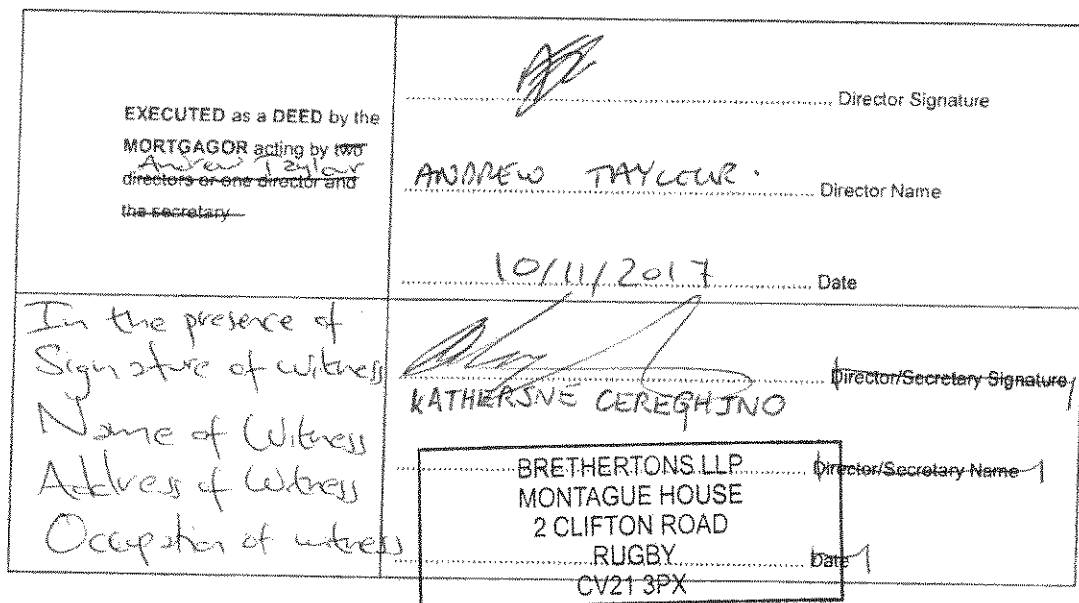 EXECUTED as a DEED by the
MORTGAGOR acting by two
Andrew Taylor
directors or one director and
the secretary
Director Signature
ANDREW TAYLOUR. Director Name
10/11/2017 Date
In the presence of
Signature of witness
Name of Witness
Address of Witness
Occupation of witness
Director/Secretary Signature
KATHERINE CEREGHINO
BRETHERTONS LLP Director/Secretary Name
MONTAGUE HOUSE
2 CLIFTON ROAD
RUGBY Date
CV21 3PX